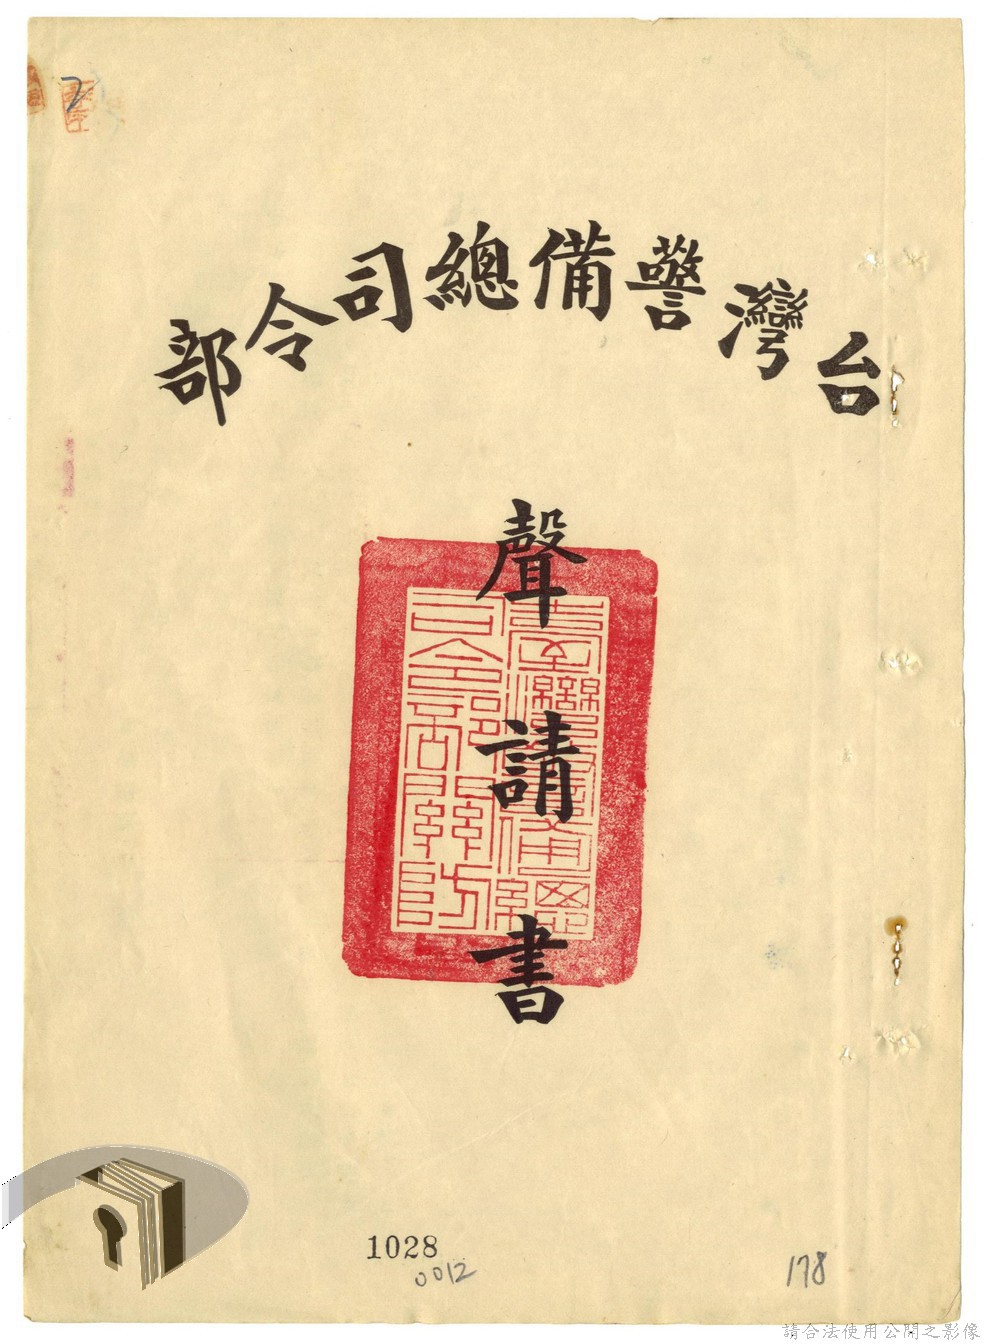 2
台灣警備總司令部
聲請書
臺灣警備總
司令部關防
1028
0012
178
請合法使用公開之影像